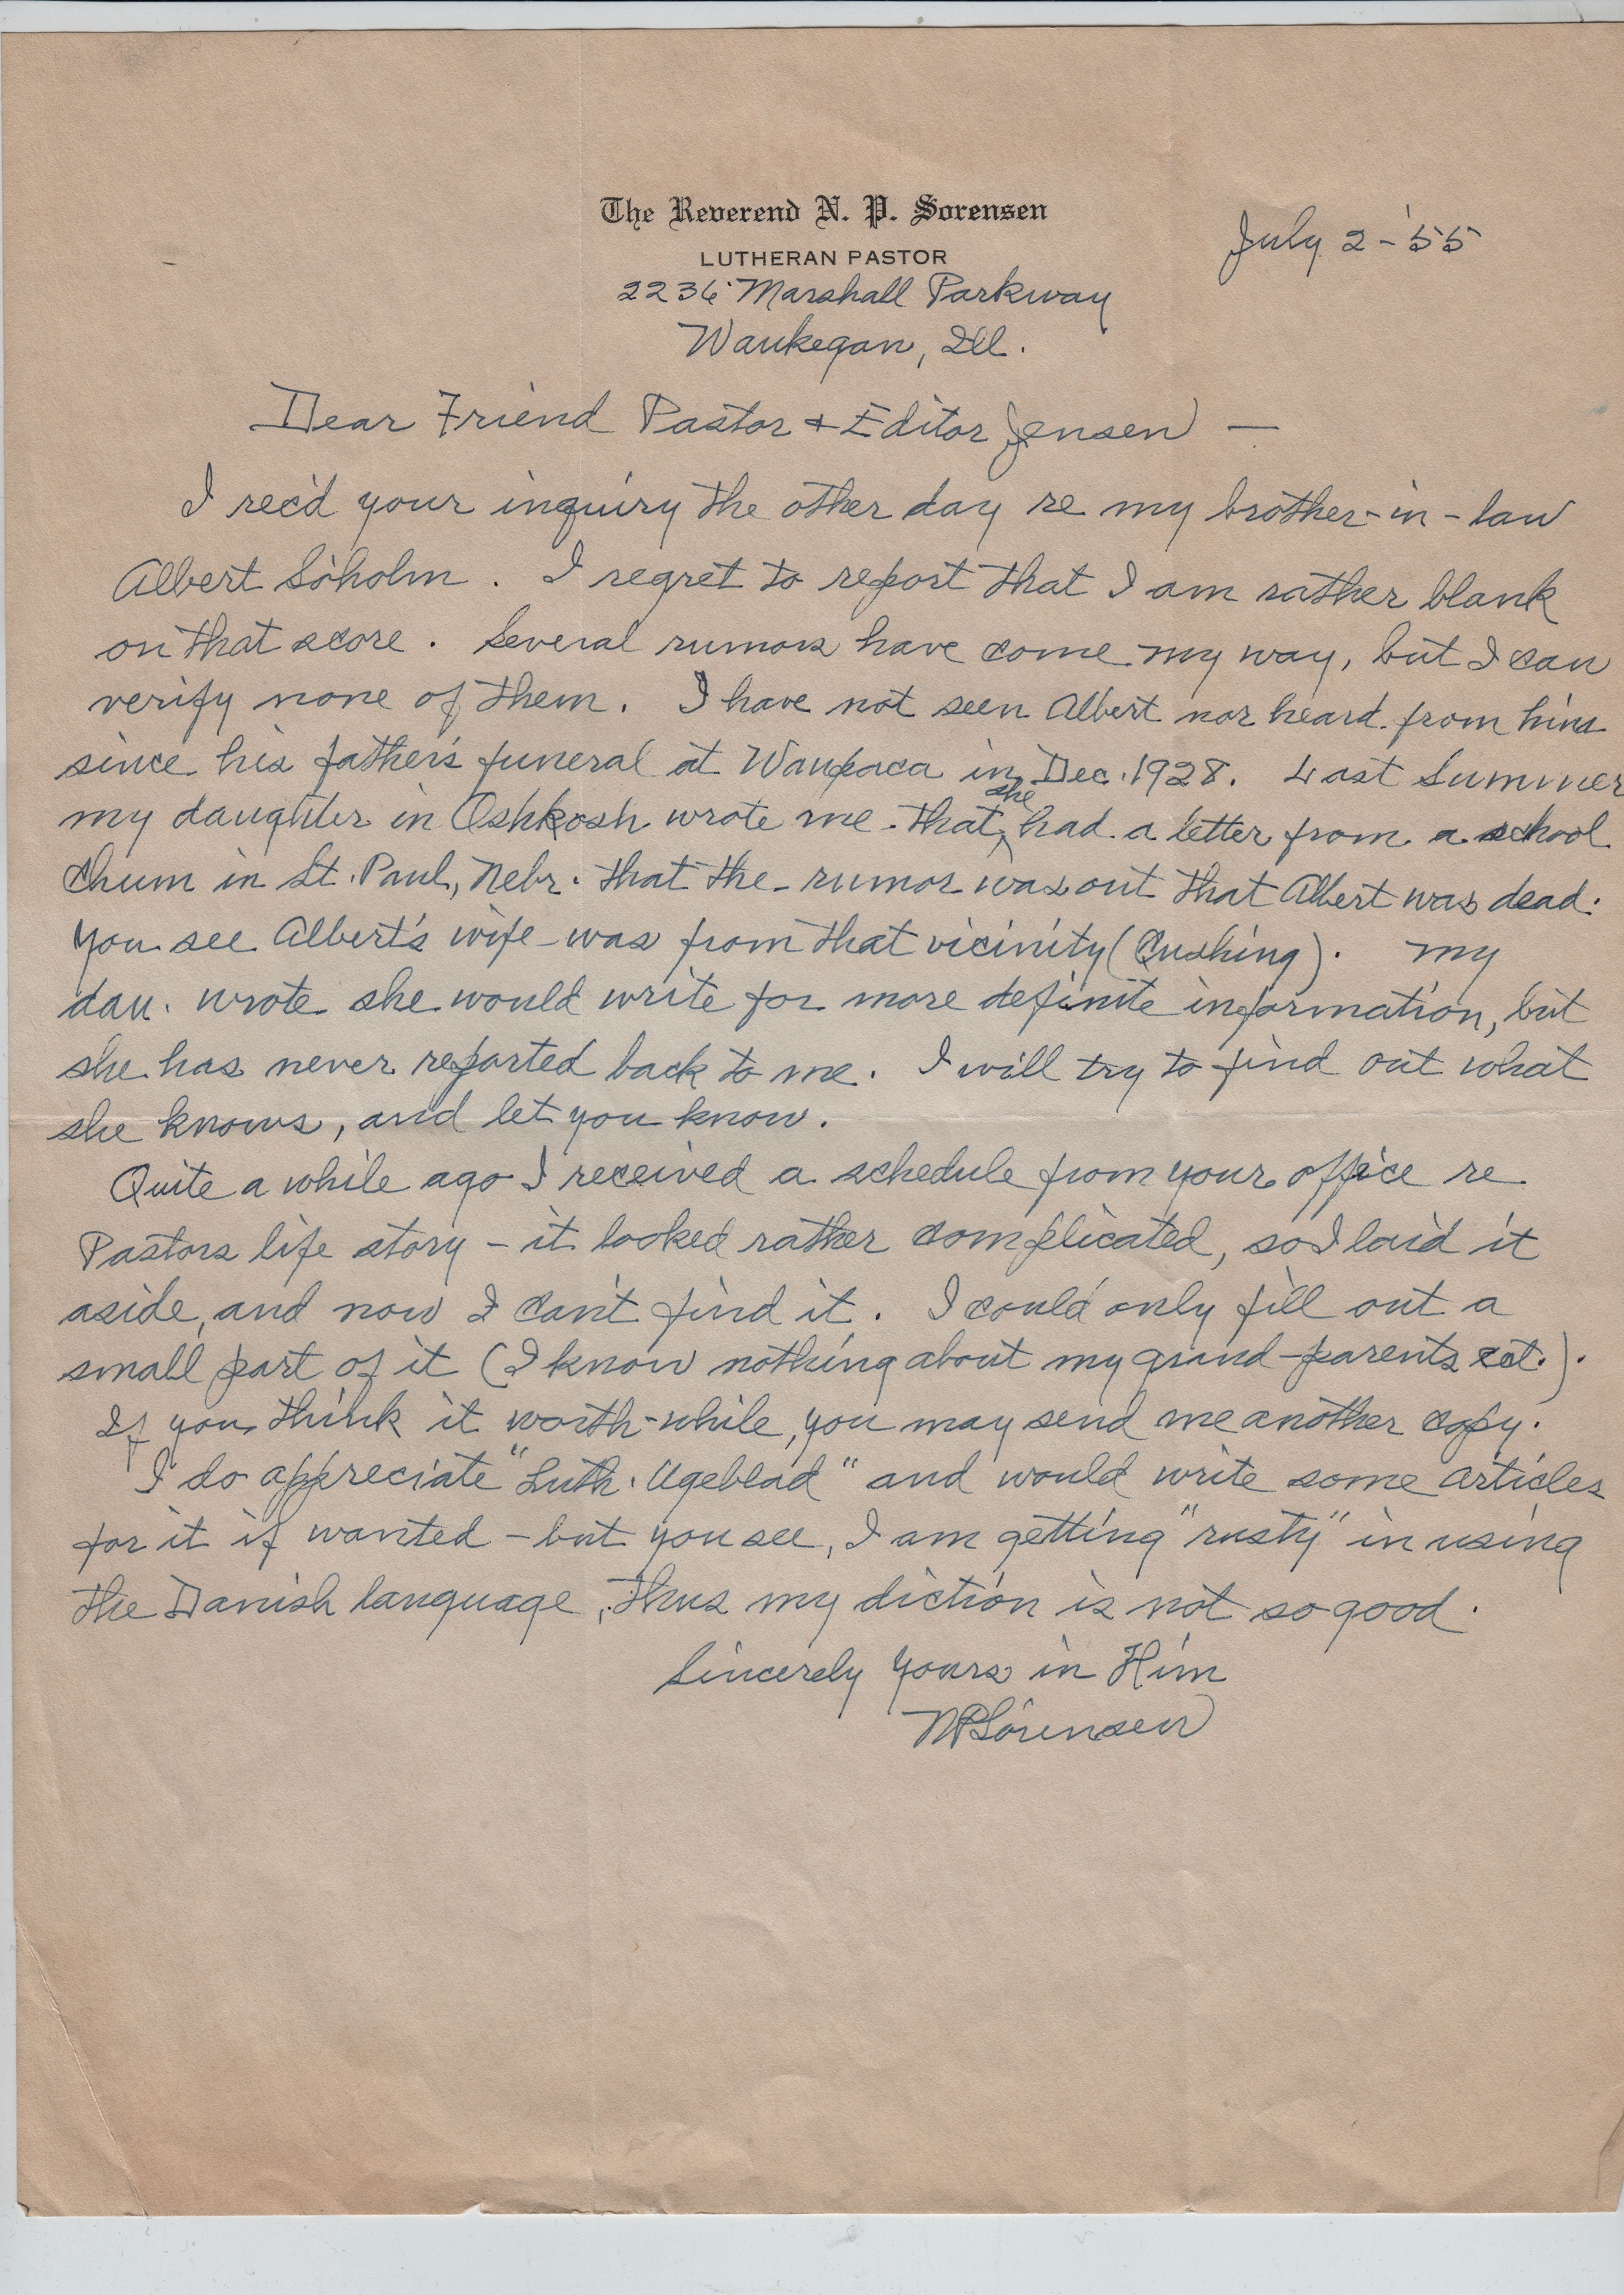 The Reverend N. P. Sorensen
LUTHERAN PASTOR
July 2 - '55
2236 Marshall Parkway
Waukegan, Ill.
Dear Friend Pastor + Editor Jensen —
I rec'd your inquiry the other day re my brother-in-law
Albert Söholm. I regret to report that I am rather blank
on that score. Several rumors have come my way, but I can
verify none of them. I have not seen Albert nor heard from him
since his father's funeral at Waupaca in Dec. 1928. Last Summer
my daughter in Oshkosh wrote me that she had a letter from a school
chum in St. Paul, Nebr. that the rumor was out that Albert was dead.
You see Albert's wife was from that vicinity (Cushing). My
dau. wrote she would write for more definite information, but
she has never reported back to me. I will try to find out what
she knows, and let you know.
Quite a while ago I received a schedule from your office re
Pastors life story - it looked rather complicated, so I laid it
aside, and now I can't find it. I could only fill out a
small part of it (I know nothing about my grand-parents ect.).
If you think it worth-while, you may send me another copy.
I do appreciate "Luth. Ugeblad" and would write some articles
for it if wanted - but you see, I am getting "rusty" in using
the Danish language, thus my diction is not so good.
Sincerely Yours in Him
NPSörensen